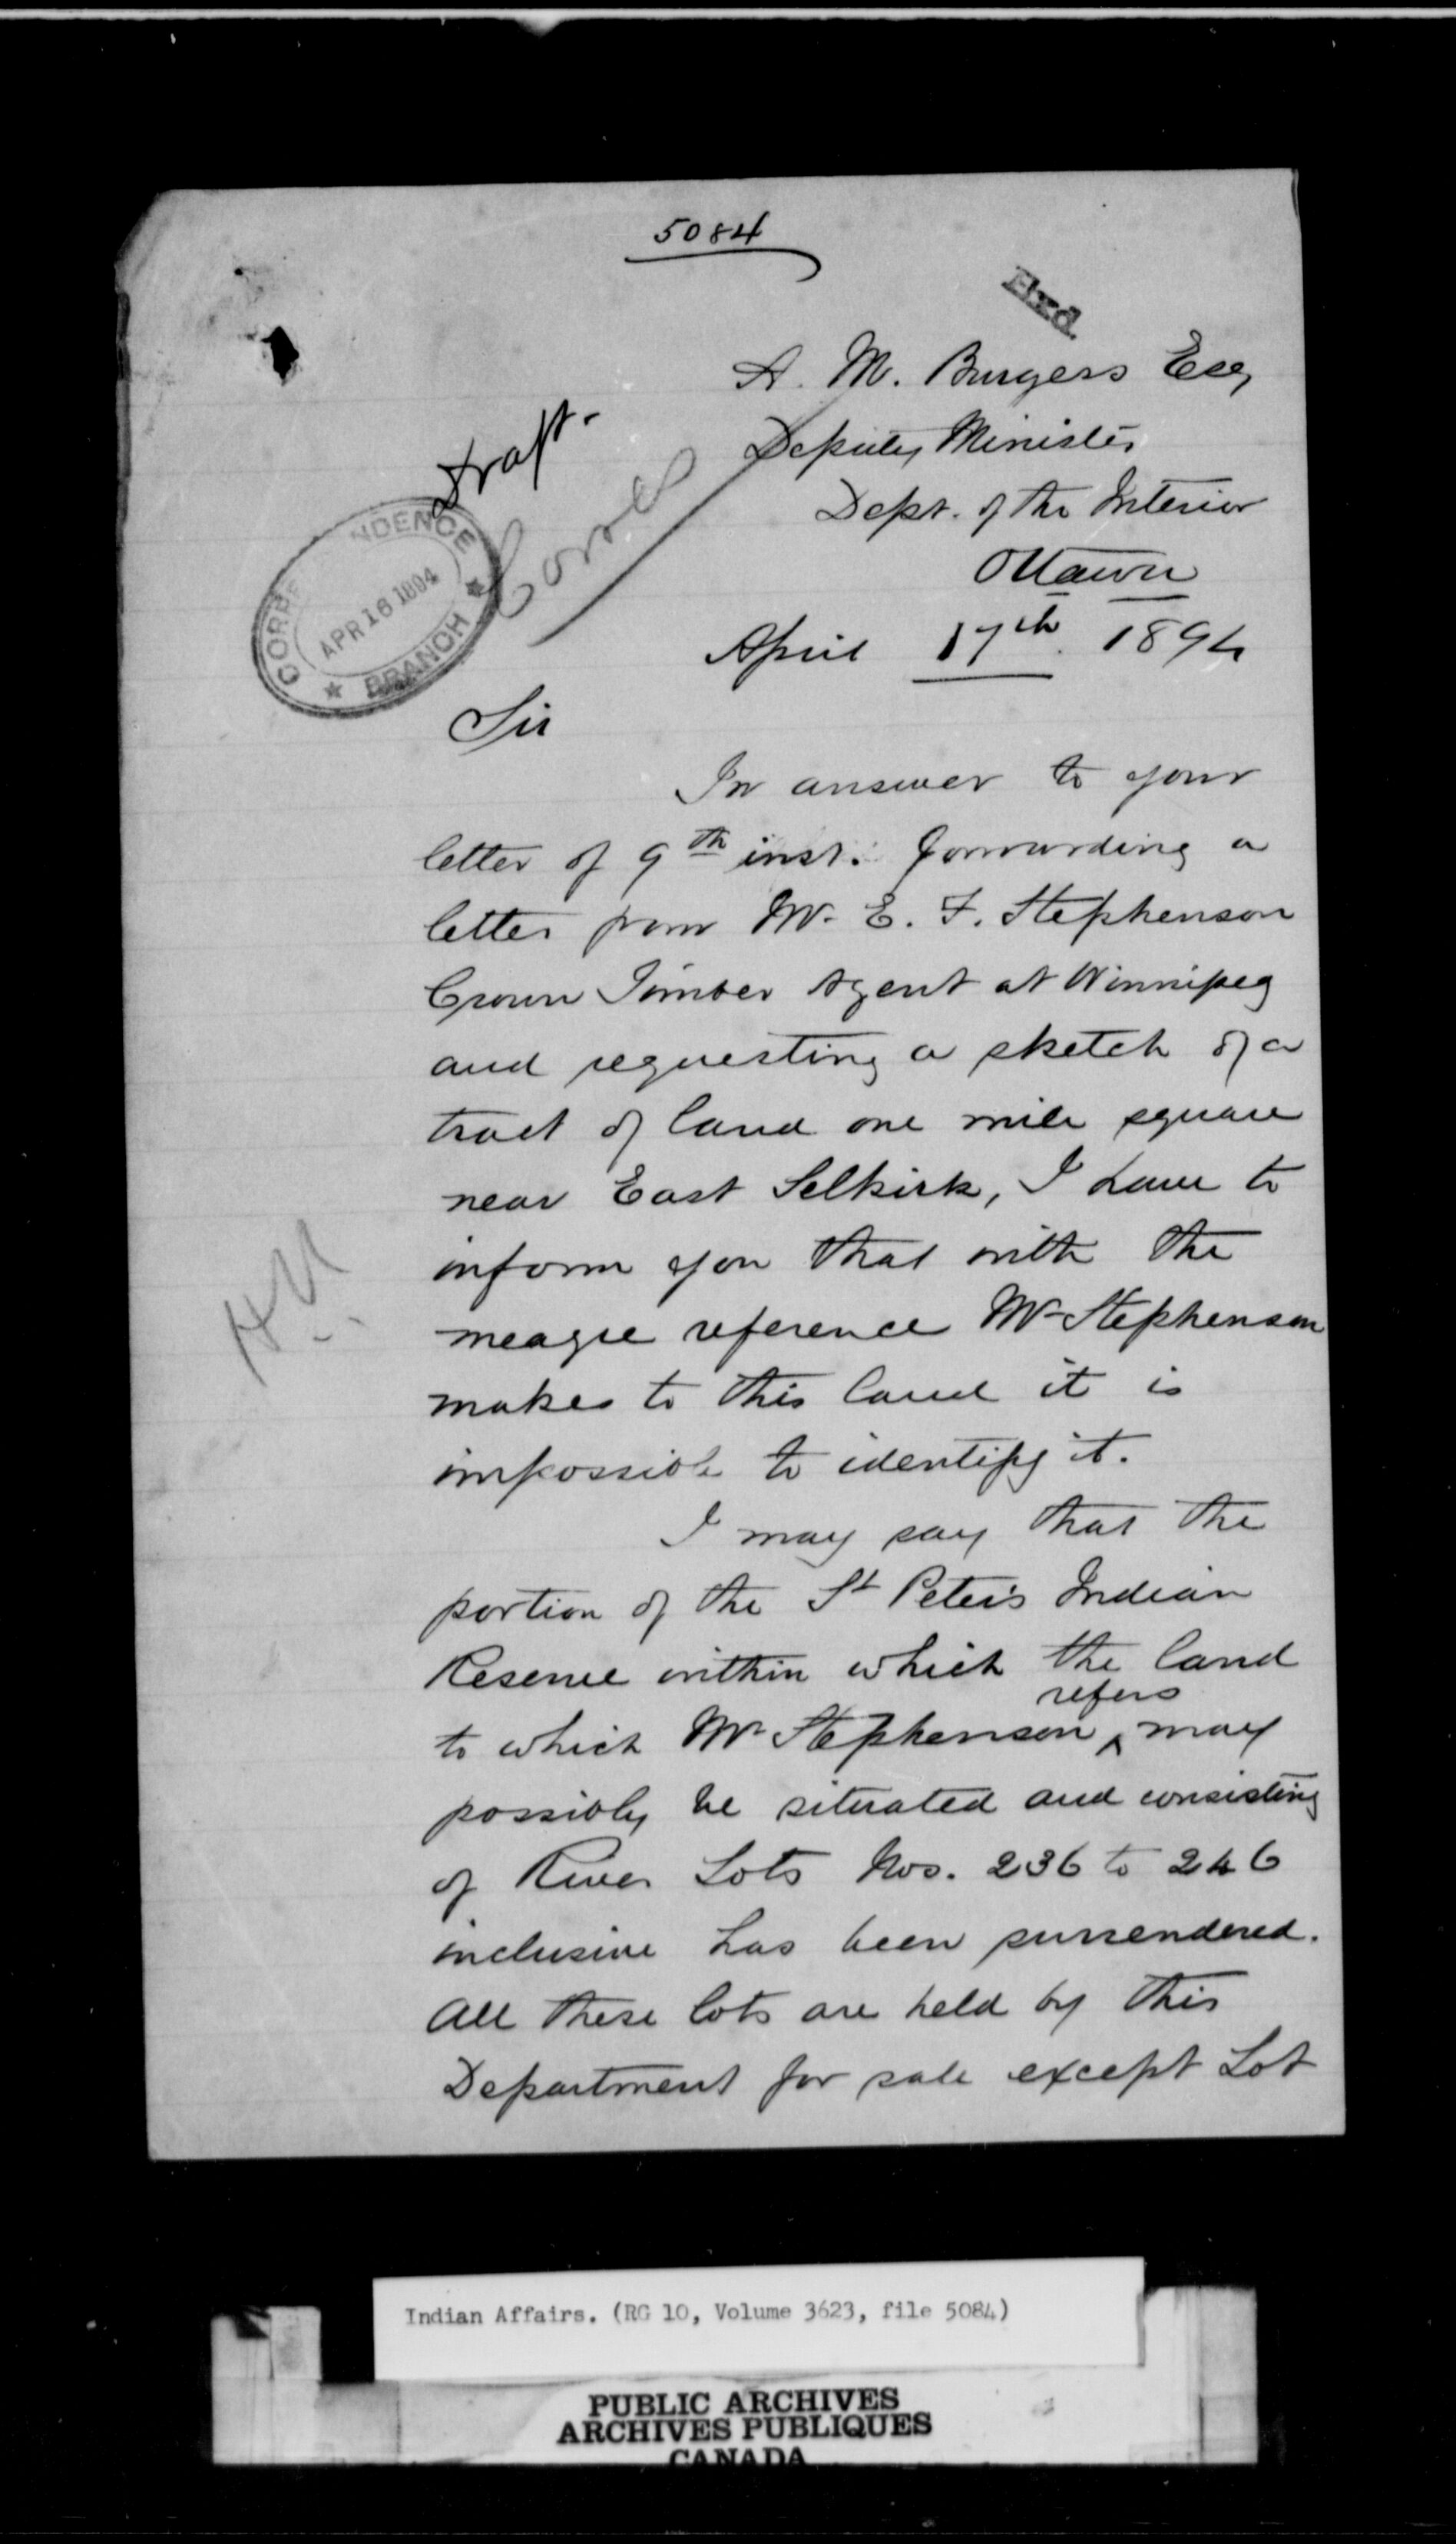 5084
Exd.
A. M. Burgess Esq
Deputy Minister
Dept. of the Interior
Ottawa
Draft.
CORRE NDENCE
APR 16 1894
★ BRANCH ★
April 17th. 1894
Sir
In answer to your
letter of 9th inst. forwarding a
letter from Mr. E. F. Stephenson
Crown Timber Agent at Winnipeg
and requesting a sketch of a
tract of land one mile square
near East Selkirk, I have to
inform you that with the
meagre reference Mr Stephenson
makes to this land it is
impossible to identify it.
I may say that the
portion of the St Peter's Indian
Reserve within which the land
to which Mr Stephenson ^ refers may
possibly be situated and consisting
of River Lots Nos. 236 to 246
inclusive has been surrendered.
All these lots are held by this
Department for sale except Lot
Indian Affairs. (RG 10, Volume 3623, file 5084)
PUBLIC ARCHIVES
ARCHIVES PUBLIQUES
CANADA